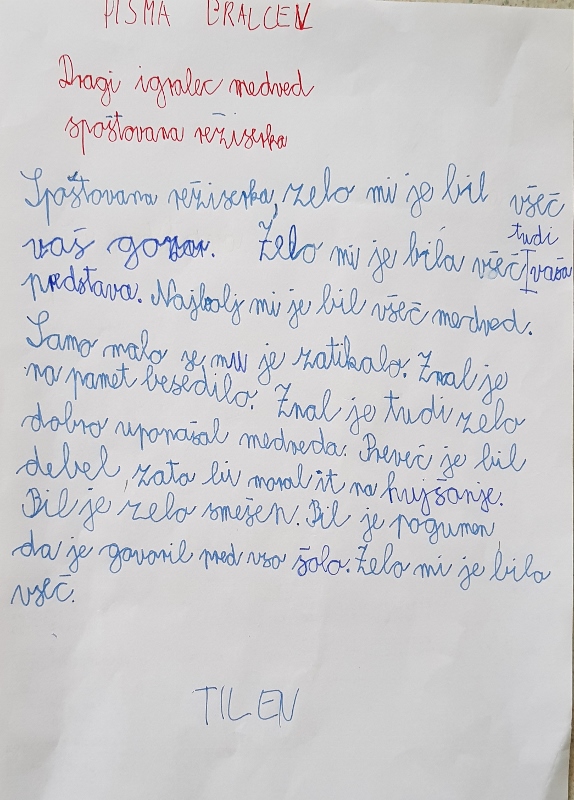 PISMA BRALCEV
Dragi igralec medved
spoštovana režiserka
Spoštovana režiserka, zelo mi je bil všeč
tudi
vaš govor. Zelo mi je bila všeč vaša
predstava. Najbolj mi je bil všeč medved.
Samo malo se mu je zatikalo. Znal je
na pamet besedilo. Znal je tudi zelo
dobro uponašal medveda. Preveč je bil
debel, zato bi moral it na hujšanje.
Bil je zelo smešen. Bil je pogumen,
da je govoril pred vso šolo. Zelo mi je bilo
všeč.
TILEN